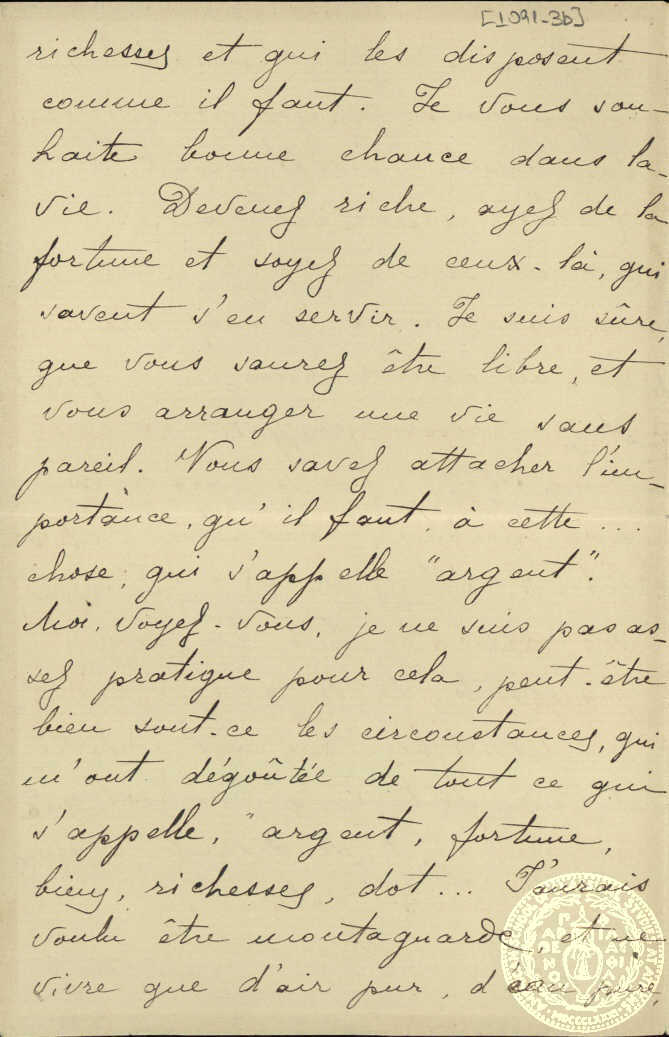 [1091-3b]
richesses et qui les disposent
comme il faut. Je vous sou-
haite bonne chance dans la
vie. Devenez riche, ayez de la
fortune et soyez de ceux-là, qui
savent s'en servir. Je suis sûre,
que vous saurez être libre, et
vous arranger une vie sans
pareil. Vous savez attacher l'im-
portance, qu'il faut, à cette ...
chose, qui s'appelle "argent".
Moi, voyez-vous, je ne suis pas as-
sez pratique pour cela, peut-être
bien sont-ce les circonstances, qui
m'ont dégoûtée de tout ce qui
s'appelle, "argent, fortune,
biens, richesses, dot... J'aurais
voulu être montagnarde, et ne
vivre que d'air pur, d'eau pure,